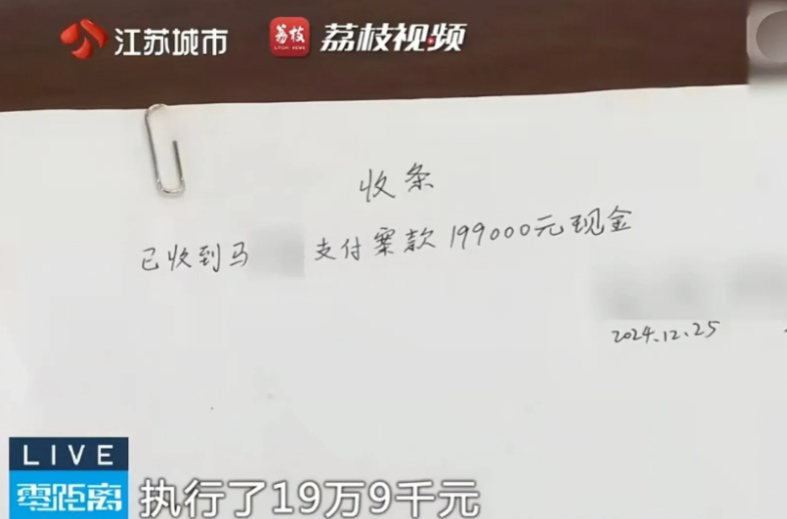 江苏城市 荔枝 LITCHI NEWS 荔枝视频
收条
已收到马 支付案款199000元现金
2024.12.25
LIVE
零距离
执行了19万9千元